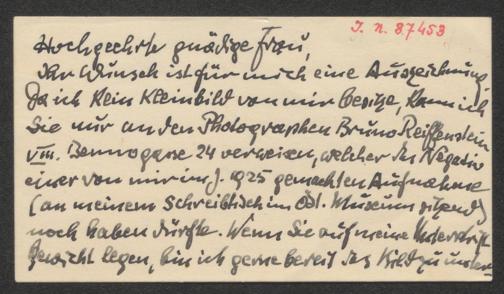 J. N. 87453
Hochgeehrte gnädige Frau,
Ihr Wunsch ist für mich eine Auszeichnung.
Da ich kein Kleinbild von mir besitze, kann ich
Sie nur an den Photographen Bruno Reiffenstein
VIII. Bennogasse 24 verweisen, welcher das Negativ
einer von mir im J. 1925 gemachten Aufnahme
(an meinem Schreibtisch im Öst. Museum sitzend)
noch haben dürfte. Wenn Sie auf meine Unterschrift
Gewicht legen, bin ich gerne bereit das Bild zu unter-